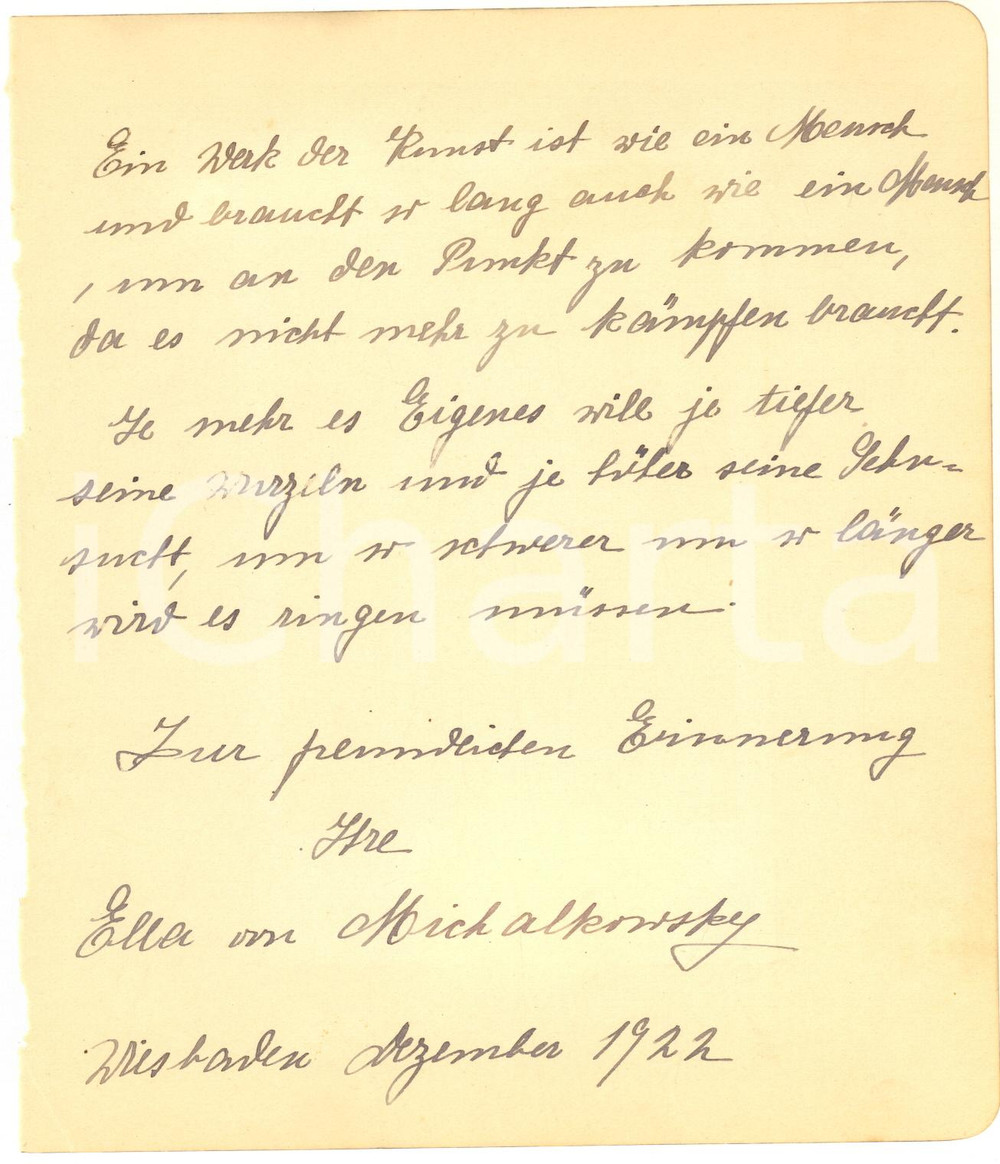 Ein Werk der Kunst ist wie ein Mensch
und braucht so lang auch wie ein Mensch
, um an den Punkt zu kommen,
da es nicht mehr zu kämpfen braucht.
Je mehr es Eigenes will je tiefer
seine Wurzeln und je höher seine Sehn=
sucht, um so schwerer um so länger
wird es ringen müssen.
Zur freundlichen Erinnerung
Ihre
Ella von Michalkowsky
Wiesbaden Dezember 1922
iCharta